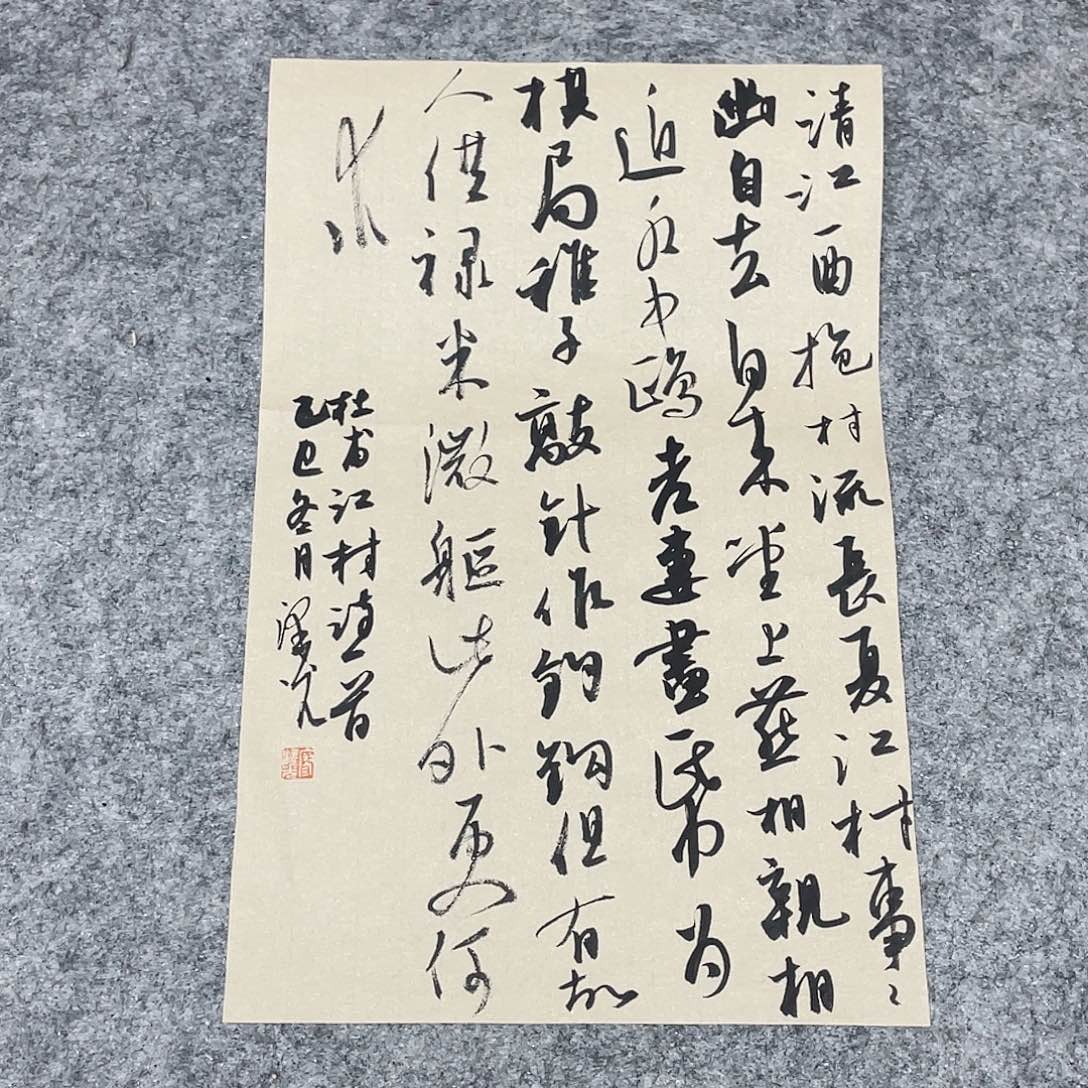 清江一曲抱村流長夏江村事〻
幽自去自来堂上燕相親相
近水中鷗老妻畫帋为
棋局稚子敲針作釣鈎但有故
人供禄米微軀此外更何
求
杜甫江村詩一首
乙巳冬月